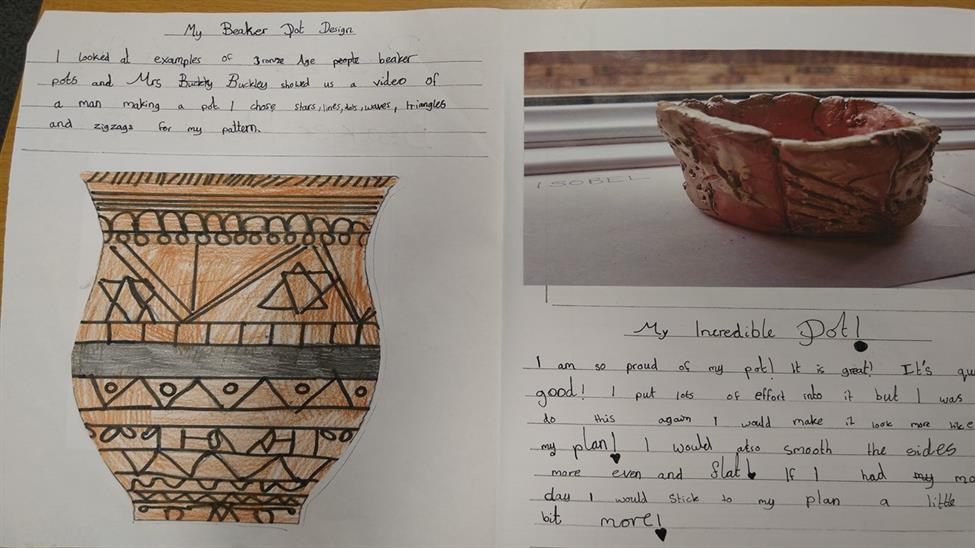 My Beaker Pot Design
I looked at examples of Bronze Age people beaker
pots and Mrs Buckley Buckley showed us a video of
a man making a pot I chose stars, lines, dots, waves, triangles
and zigzags for my pattern.
ISOBEL
My Incredible Pot!
I am so proud of my pot! It is great! It's qu
good! I put lots of effort into it but I was
do this again I would make it look more like
my plan! I would also smooth the sides
more even and flat! If I had my mo
day I would stick to my plan a little
bit more!